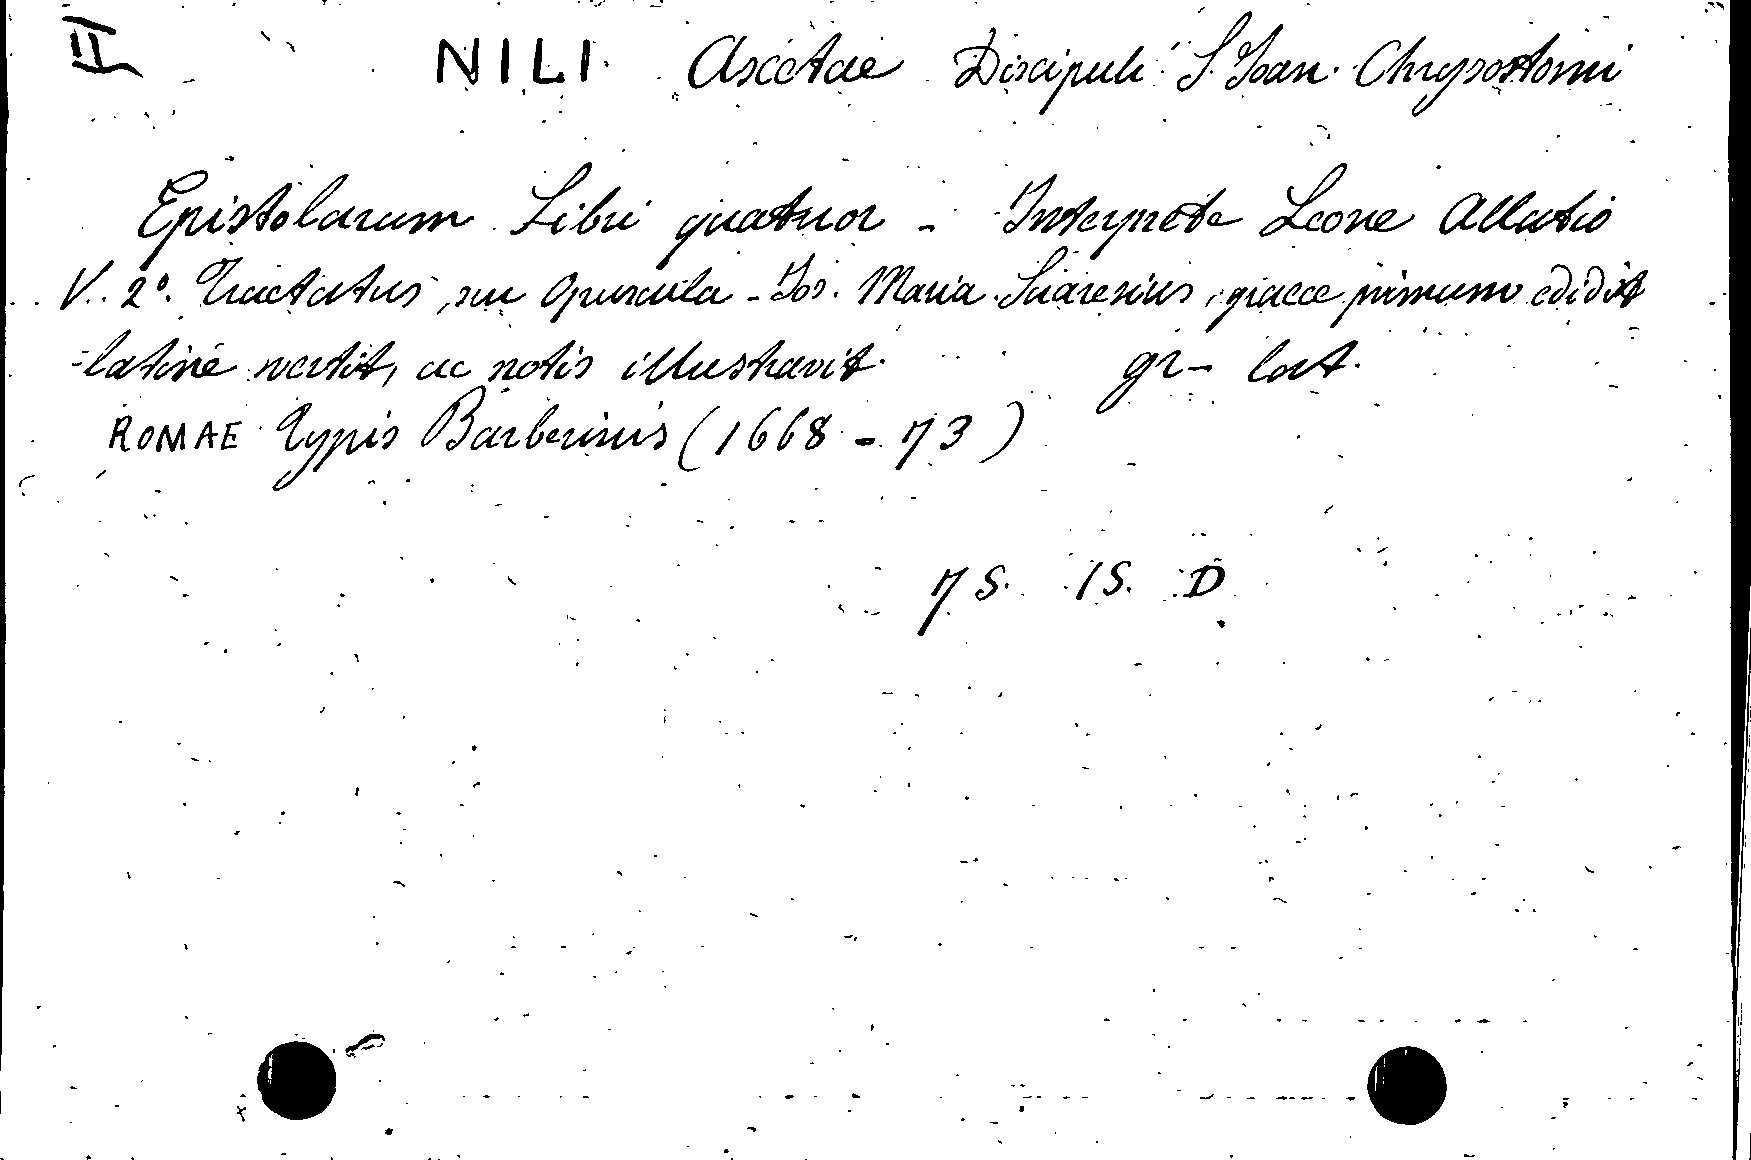 II NILI Ascetae Discipuli S. Joan. Chrysostomi
Epistolarum Libri quatuor - Interprete Leone Allatio
V. 2°. Tractatus, seu Opuscula - Jos. Maria Suaresius, graece primum edidit
latine vertit, ac notis illustravit. gr - lat.
ROMAE Typis Barberinis (1668 - 73)
7 S. 1S. D